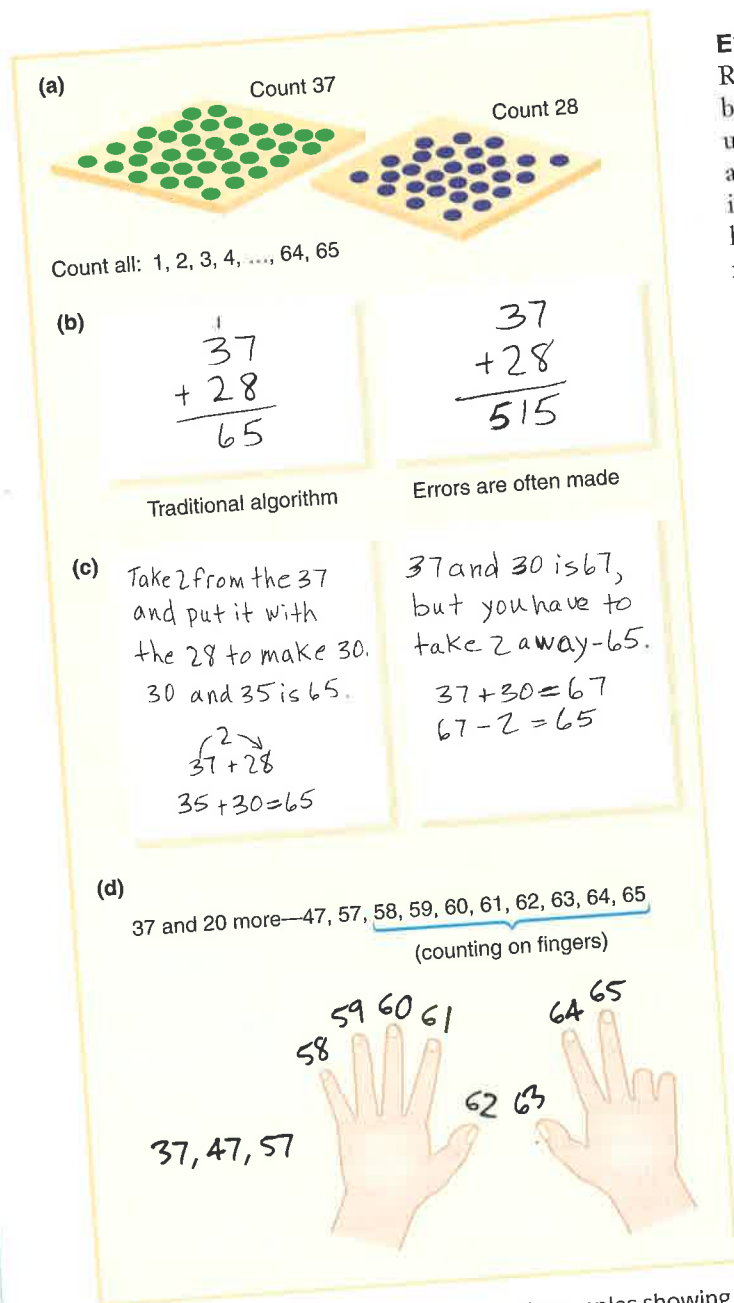 (a)
Count 37
Count 28
Count all: 1, 2, 3, 4, ..., 64, 65
(b)
1
37
+ 28
65
Traditional algorithm
37
+28
515
Errors are often made
(c)
Take 2 from the 37
and put it with
the 28 to make 30.
30 and 35 is 65.
2
37 + 28
35 + 30 = 65
37 and 30 is 67,
but you have to
take 2 away-65.
37 + 30 = 67
67 - 2 = 65
(d)
37 and 20 more—47, 57, 58, 59, 60, 61, 62, 63, 64, 65
(counting on fingers)
58 59 60 61 62 63 64 65
37, 47, 57
showing